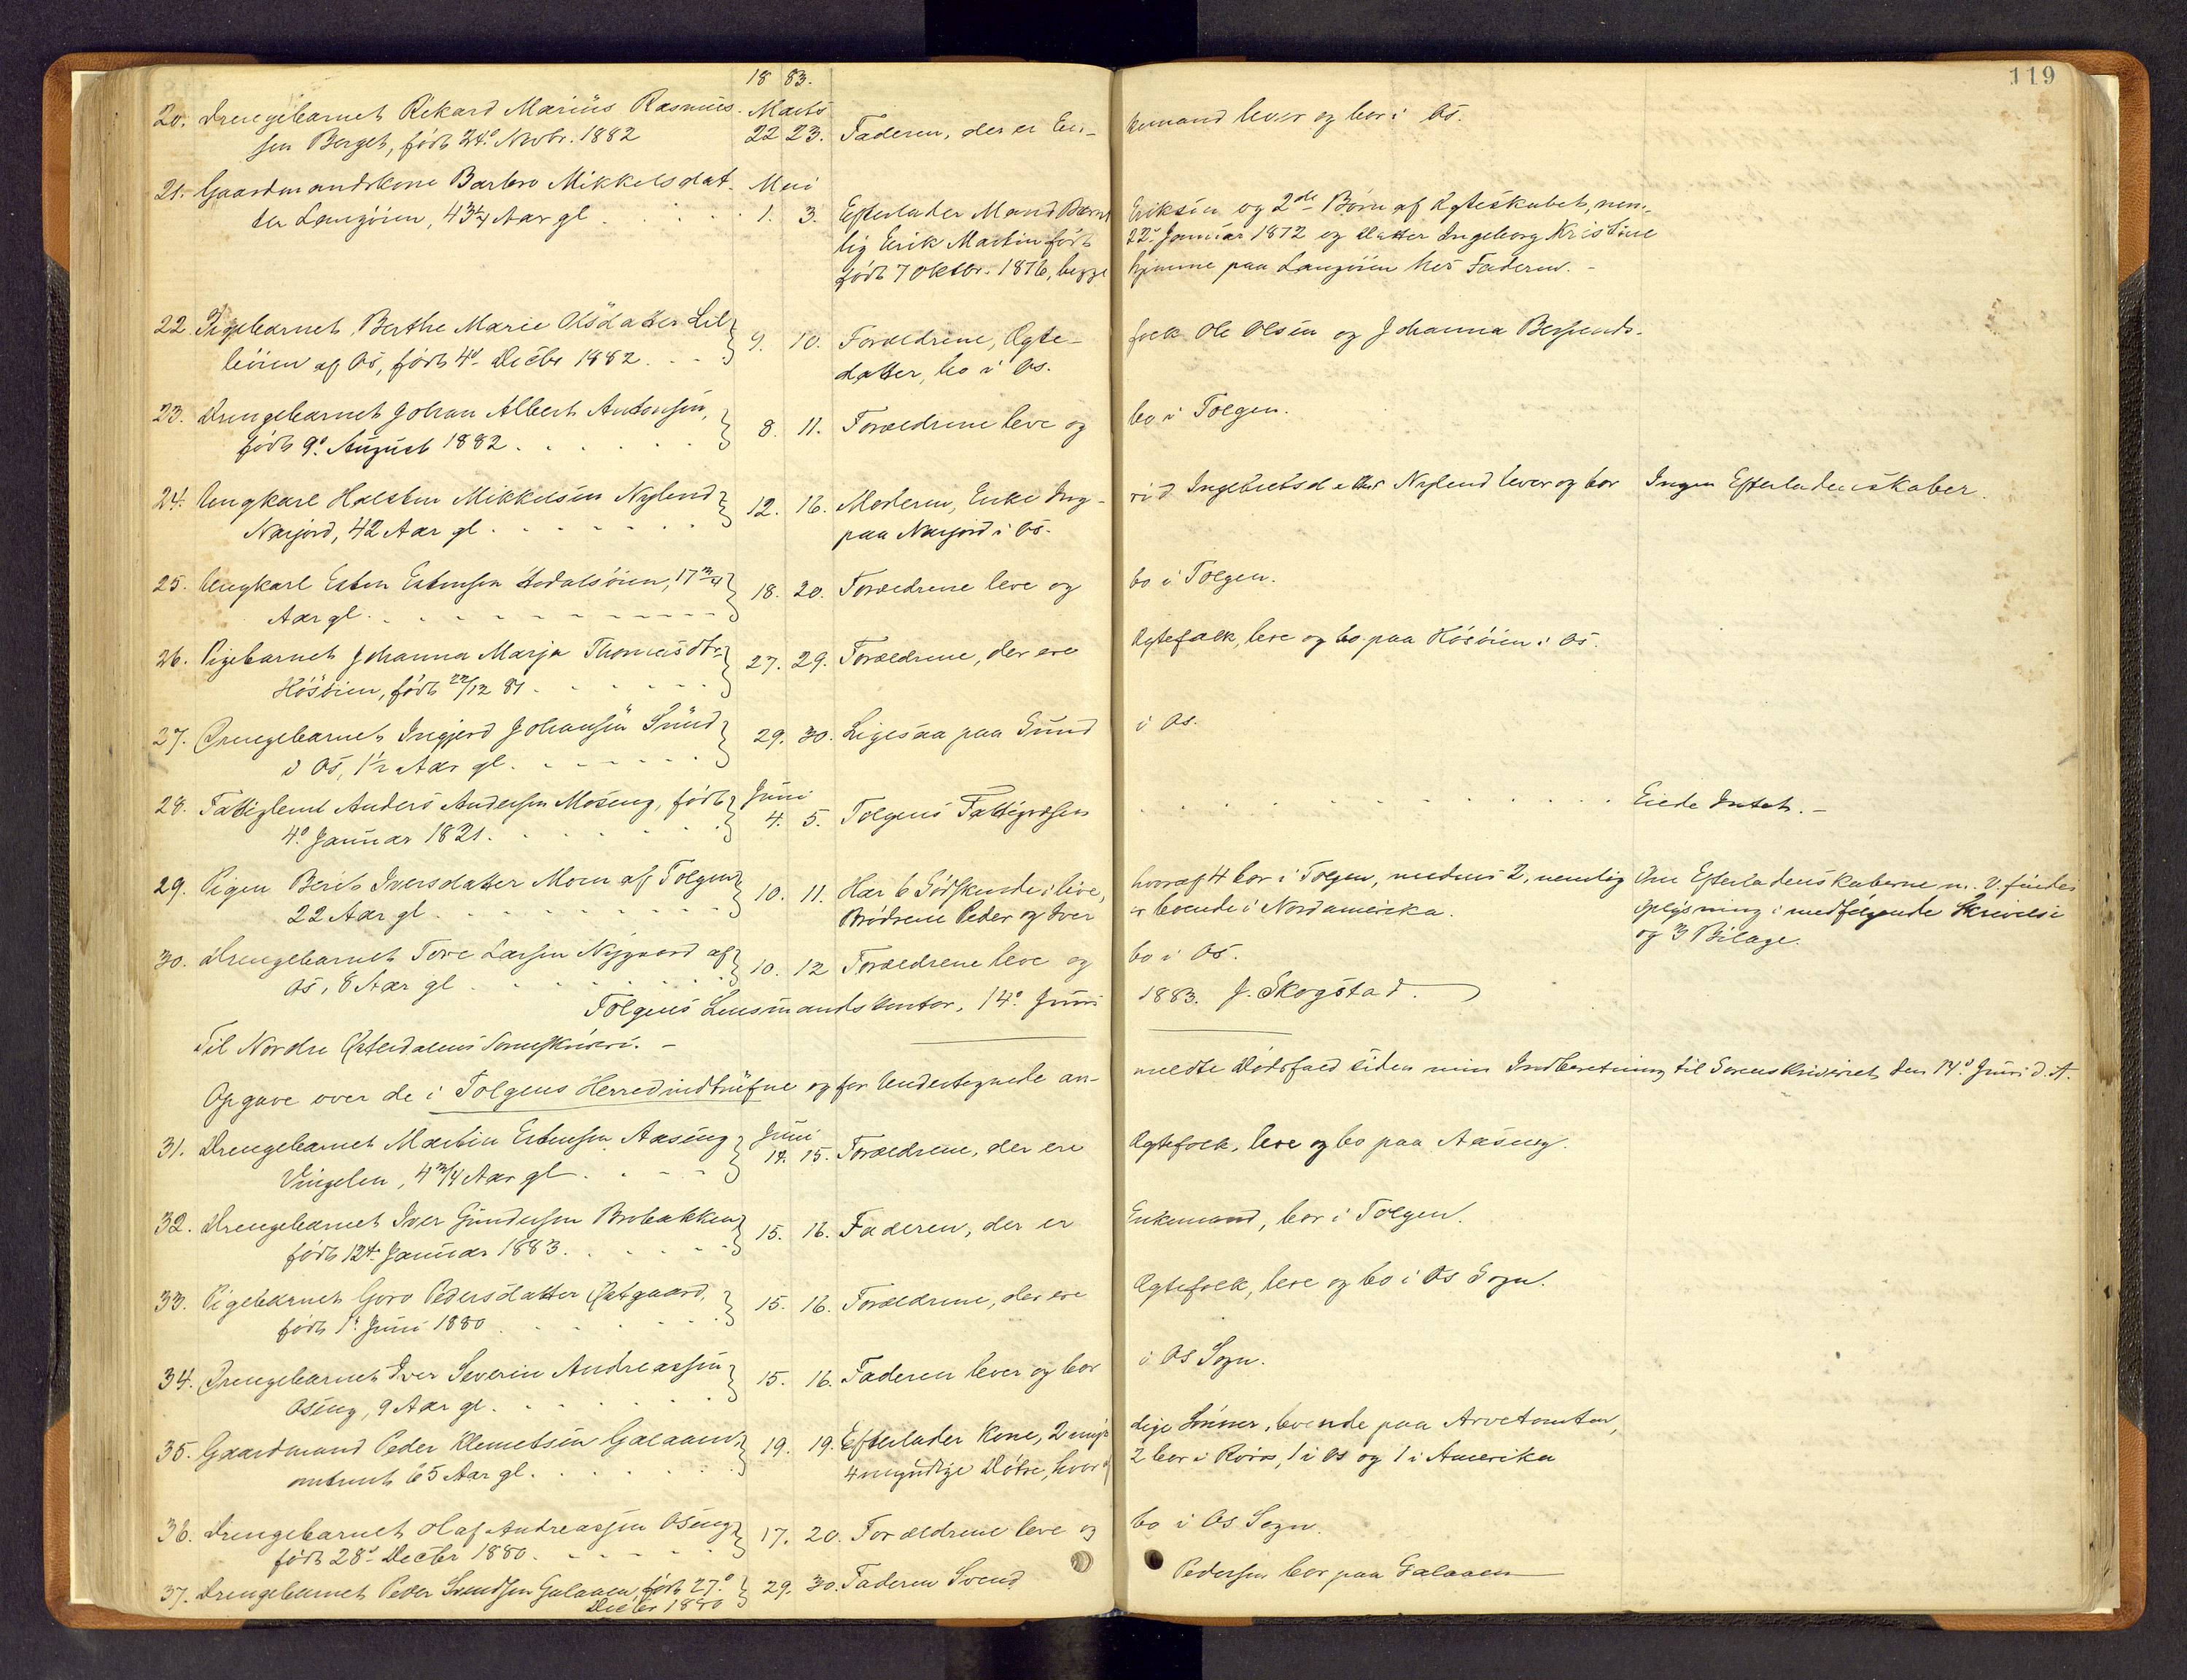 119
1883.
20. Drengebarnet Rikard Marius Rasmus- Marts
sen Berget, født 24de Novbr. 1882 22 23. Faderen, der er En- kemand lever og bor i Os.
21. Gaardmandskone Barbro Mikkelsdat- Mai
ter Langøien, 43 1/4 Aar gl. 1. 3. Efterlader Mand Bernt Eriksen og 2de Børn af Ægteskabet, nem-
lig Erik Martin født 22de Januar 1872 og Datter Ingeborg Kristine
født 7 Oktbr. 1876, begge hjemme paa Langøien hos Faderen. -
22. Pigebarnet Berthe Marie Olsdatter Lil- 9. 10. Forældrene, Ægte- folk Ole Olsen og Johanna Bersvends-
leøien af Os, født 4de Decbr 1882. datter, bo i Os.
23. Drengebarnet Johan Albert Antonsen, 8. 11. Forældrene leve og bo i Tolgen.
født 9de August 1882.
24. Ungkarl Halsten Mikkelsen Nylend 12. 16. Moderen, Enke Ing- rid Ingebretsdatter Nylend lever og bor Ingen Efterladenskaber.
Narjord, 42 Aar gl. paa Narjord i Os.
25. Ungkarl Esten Estensen Hodalsøien, 17 3/4 18. 20. Forældrene leve og bo i Tolgen.
Aar gl.
26. Pigebarnet Johanna Marja Thomasdtr. 27. 29. Forældrene, der ere Ægtefolk, leve og bo paa Høsøien i Os.
Høsøien, født 22/12 81.
27. Drengebarnet Ingjerd Johansen Sund 29. 30. Ligesaa paa Sund i Os.
i Os, 1 1/2 Aar gl.
28. Fattiglem Anders Andersen Moseng, født Juni
4de Januar 1821. 4. 5. Tolgens Fattigvæsen Eiede Intet. -
29. Pigen Berit Iversdatter Moen af Tolgen 10. 11. Har 6 Sødskende i live, hvoraf 4 bor i Tolgen, medens 2, nemlig Om Efterladenskaberne m. V. findes
22 Aar gl. Brødrene Peder og Iver er boende i Nordamerika. Oplysning i medfølgende Skrivelse
og 3 Bilage.
30. Drengebarnet Tore Larsen Nygaard af 10. 12 Forældrene leve og bo i Os.
Os, 8 Aar gl.
Tolgens Lensmandskontor, 14de Juni 1883. J. Skogstad.
Til Nordre Østerdalens Sorenskriveri. -
Opgave over de i Tolgens Herred indtrufne og for Undertegnede an- meldte Dødsfald siden min Indberetning til Sorenskriveriet den 14de Juni d. A.
31. Drengebarnet Martin Estensen Aaseng Juni
Vingelen, 4 3/4 Aar gl. 14. 15. Forældrene, der ere Ægtefolk, leve og bo paa Aaseng.
32. Drengebarnet Iver Gundersen Brobakken 15. 16. Faderen, der er Enkemand, bor i Tolgen.
født 12te Januar 1883.
33. Pigebarnet Goro Pedersdatter Østgaard, 15. 16. Forældrene, der ere Ægtefolk, leve og bo i Os Sogn.
født 1ste Juni 1880
34. Drengebarnet Iver Severin Andreassen 15. 16. Faderen lever og bor i Os Sogn.
Oseng, 9 Aar gl.
35. Gaardmand Peder Klemetsen Galaaen, 19. 19. Efterlader Kone, 2 myn- dige Sønner, boende paa Arvetomten,
omtrent 65 Aar gl. 4 myndige Døtre, hvoraf 2 bor i Røros, 1 i Os og 1 i Amerika
36. Drengebarnet Olaf Andreassen Oseng 17. 20. Forældrene leve og bo i Os Sogn.
født 28de Decbr 1880.
37. Drengebarnet Peder Svendsen Galaaen, født 27de 29. 30. Faderen Svend Pedersen bor paa Galaaen
Decbr 1880